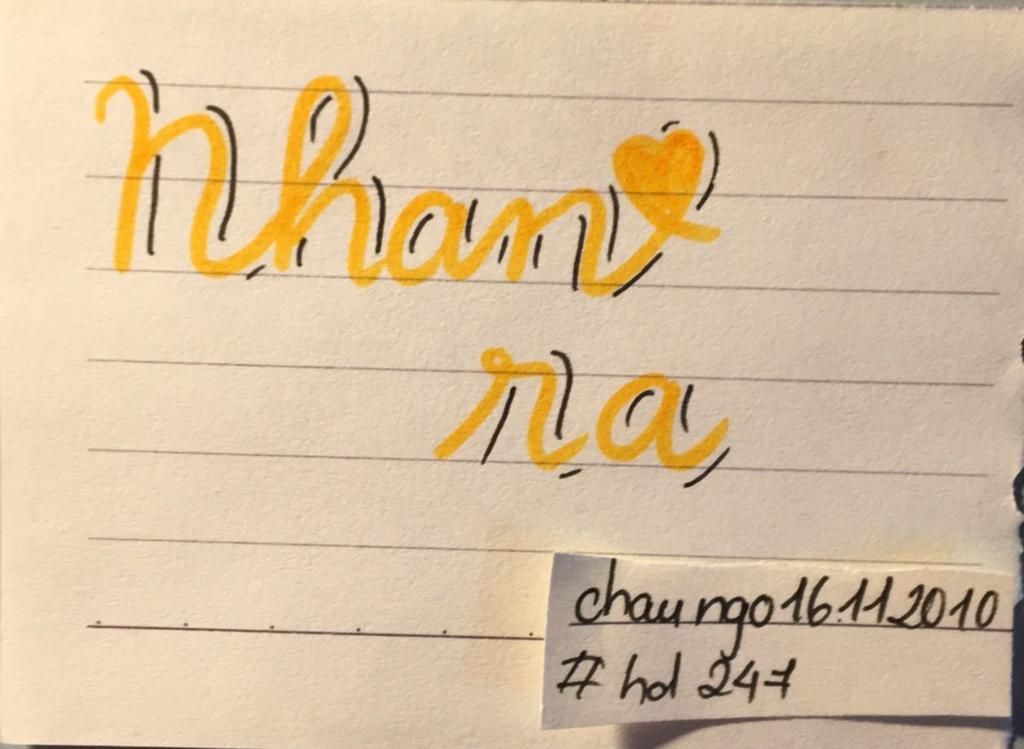 Nhan
ra
chaungo16.112010
# hd 247